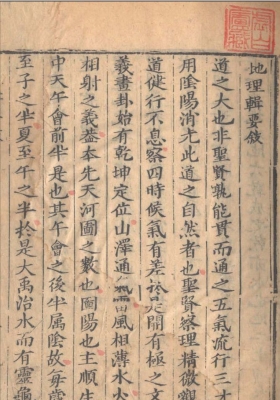 地理輯要敘
道之大也非聖賢孰能貫而通之五氣流行三才
用陰陽消尤此道之自然者也聖賢察理精微觀
道徒行不息察四時候氣有差於是開有極之文
羲畫卦始有乾坤定位山澤通氣雷風相薄水火
相射之義葢本先天河圖之數也圖陽也主順生
中天午會前半是也其午會之後半屬陰故每歲
至子之半夏至午之半於是大禹治水而有靈龜